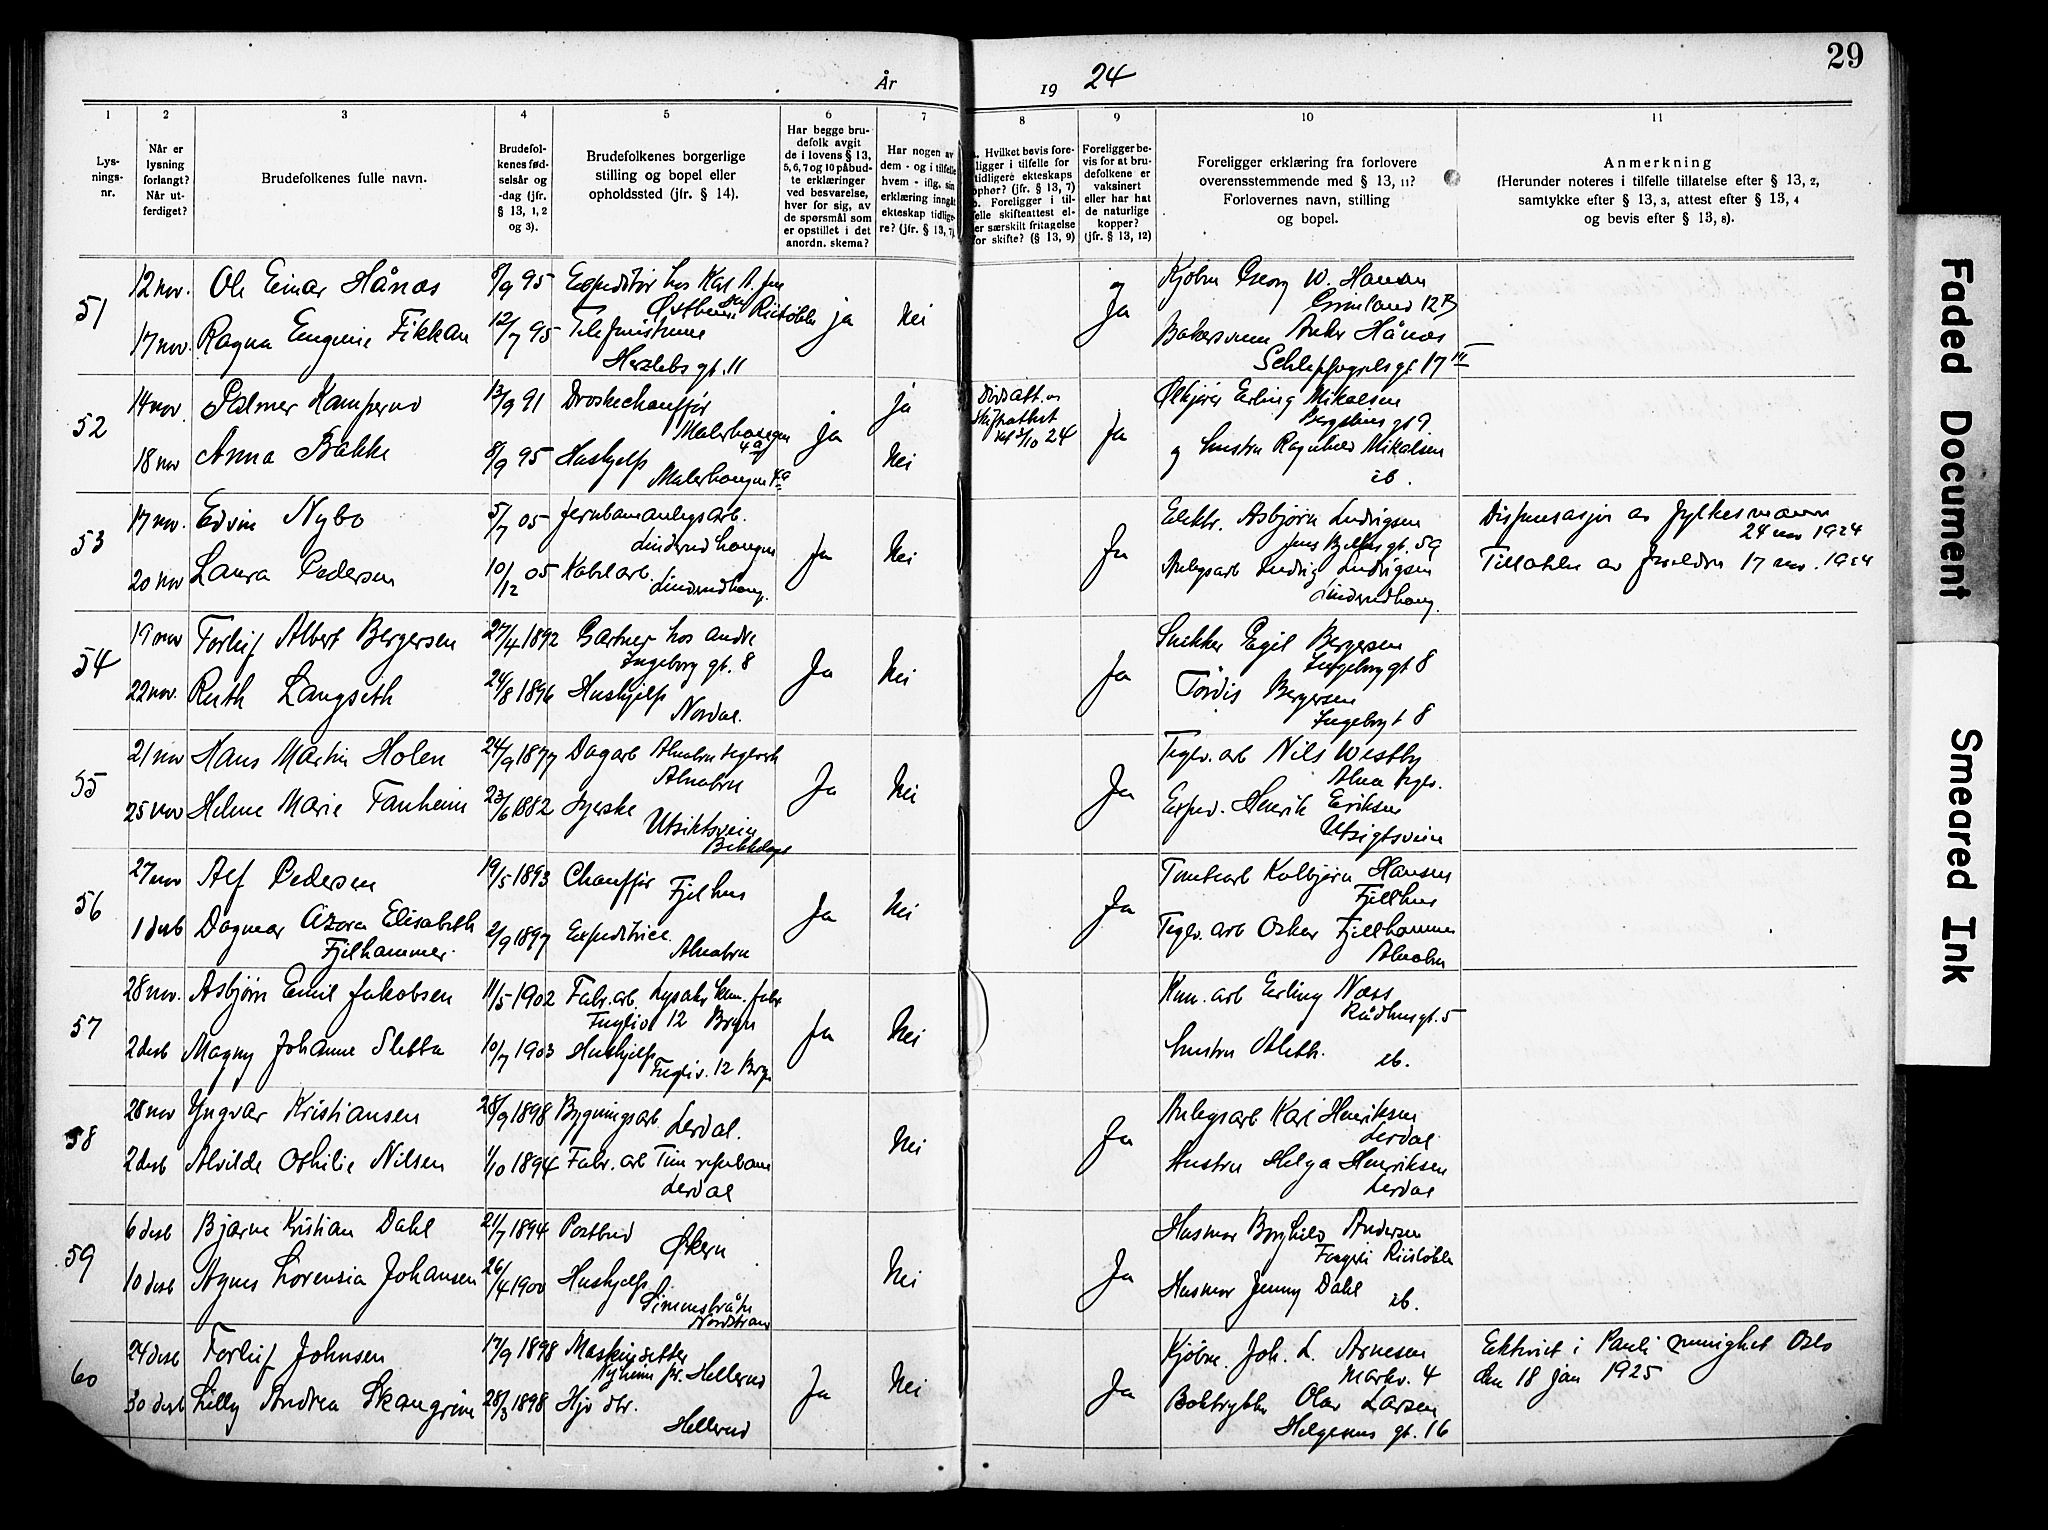 29
År 19 24
1 2 3 4 5 6 7 8 9 10 11
Lys-
nings-
nr.
Når er
lysning
forlangt?
Når ut-
ferdiget?
Brudefolkenes fulle navn.
Brudefol-
kenes fød-
selsår og
-dag (jfr.
§ 13, 1, 2
og 3).
Brudefolkenes borgerlige
stilling og bopel eller
opholdssted (jfr. § 14).
Har begge bru-
defolk avgit
de i lovens § 13,
5, 6, 7 og 10 påbud-
te erklæringer
ved besvarelse,
hver for sig, av
de spørsmål som
er opstillet i det
anordn. skema?
Har nogen av
dem - og i tilfelle
hvem - iflg. sin
erklæring inngåt
ekteskap tidlige-
re? (jfr. § 13, 7).
Hvilket bevis fore-
ligger i tilfelle for
tidligere ekteskaps
ophør? (jfr. § 13, 7)
Foreligger i til-
felle skifteattest el-
er særskilt fritagelse
for skifte? (§ 13, 9)
Foreligger be-
vis for at bru-
defolkene er
vaksinert
eller har hat
de naturlige
kopper?
(jfr. § 13, 12)
Foreligger erklæring fra forlovere
overensstemmende med § 13, 11?
Forlovernes navn, stilling
og bopel.
Anmerkning
(Herunder noteres i tilfelle tillatelse efter § 13, 2,
samtykke efter § 13, 3, attest efter § 13, 4
og bevis efter § 13, 8).
51 12 nov. Ole Einar Hånæs 8/9 95 Expeditør hos Karl
ja Nei Ja Kjøbm Georg W. Hansen
Grønland 12 B
17 nov. Ragna Eugenie Fikkan 12/7 95 Telefonistinne
Herslebs gt. 11
Anker Hånæs
Schleppegrels gt 17 III
52 14 nov. Palmer Kamperud 13/9 91 Droskechauffør
Malerhaugen 4a
ja ja Nei
24
Ja Erling Mikalsen
gt 9
18 nov Anna Bakke 8/9 95 Hushjelp
Malerhaugen 4a
og hustru Ragnhild Mikalsen
ib.
53 17 nov. Edvin Nybo 5/7 05 Jernbaneanlegsarb.
Linderud haugen
Ja Nei Ja Elektr. Asbjørn Ludvigsen
Jens Bjelkes gt. 59
Dispensasjon av fylkesmann
24 nov 1924
20 nov Laura Pedersen 10/12 05 Kabelarb.
Linderudhaug.
Anlegsarb Ludvig Ludvigsen
Linderudhaug.
Tillatelse av foreldre 17 nov. 1924
54 19 nov Torleif Albert Bergersen 27/4 1892 Gartner hos andre
Ingeborg gt. 8
Ja Nei Ja Snekker Egil Bergersen
Ingeborg gt 8
22 nov. Ruth Langseth 24/8 1896 Hushjelp
Nordal.
Tordis Bergersen
8
55 21 nov Hans Martin Holen 24/9 1877 Dagarb Alnabru teglverk
Alnabru
Ja Nei Ja Teglv. arb Nils Westby
Alna teglv.
25 nov Helene Marie Tanheim 23/6 1882 Syerske
Utsiktsveien
Exped. Henrik Eriksen
Utsigtsveien
56 27 nov Alf Pedersen 19/5 1893 Chauffør
Fjelhus
Ja Nei Ja Tomtearb Kolbjørn Hansen
Fjellhus
1 desb Dagmar Azora Elisabeth
Fjelhammer.
2/9 1897 Expeditrice
Alnabru
Teglv. arb Oskar Fjellhammer
Alnabru
57 28 nov. Asbjørn Emil Jakobsen 11/5 1902 Fabr. arb. Lysaker kem. fabr
12 Bryn
Ja Nei Kom. arb Erling Næss
Rådhusgt. 5
2 desb Magny Johanne Sletta 10/7 1903 Hushjelp
12 Bryn
hustru Aleth. ib.
58 28 nov Yngvar Kristiansen 28/9 1898 Bygningsarb
Lerdal.
Nei Ja Anlegsarb Karl Henriksen
Lerdal
2 desb Alvilde Othilie Nilsen 1/10 1894 Fabr. arb Tiun reperbane
Lerdal
Hustru Helga Henriksen
Lerdal
59 6 desb Bjarne Kristian Dahl 21/7 1894 Postbud
Økern
Nei Ja Husmor Borghild Andersen
Riisløkka
10 desb Agnes Lorensia Johansen 26/4 1900 Hushjelp
Simensbråten
Nordstrand
Husmor Jenny Dahl ib.
60 24 desb Torleif Johnsen 17/9 1898 Maskinsetter
Nyheim pr. Hellerud
Ja Nei Ja Kjøbm. Joh. L. Arnesen
Markv. 4
Ektviet i Pauli menighet Oslo
den 18 jan 1925
30 desb Lilly Andrea Skaugrim 28/3 1898 Hjv dtr.
Hellerud
Boktrykker Olav Larsen
Helgesens gt. 16
Faded Document
Smeared Ink